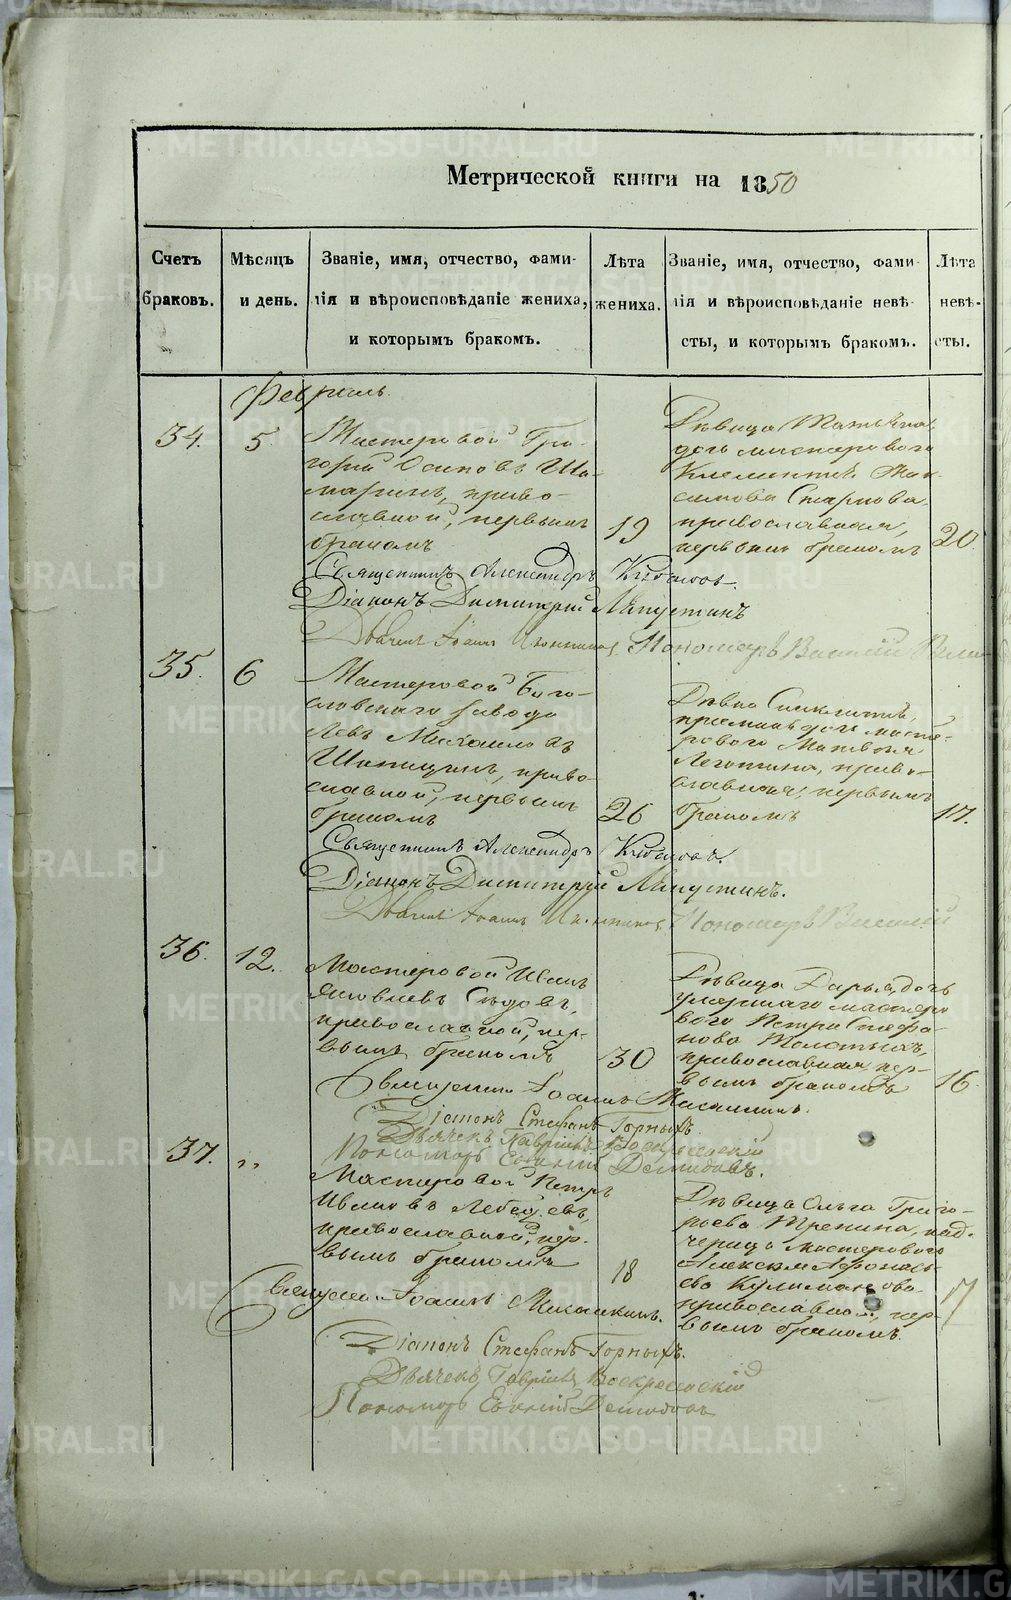 Метрической книги на 1850
Счетъ браковъ.
Мѣсяцъ и день.
Званіе, имя, отчество, фамилія и вѣроисповѣданіе жениха, и которымъ бракомъ.
Лѣта жениха.
Званіе, имя, отчество, фамилія и вѣроисповѣданіе невѣсты, и которымъ бракомъ.
Лѣта невѣсты.
Февраль
34.
5.
Мастеровой Гри-
горій Осиповъ Ша-
маринъ, право-
славной, первымъ
бракомъ
19
Дѣвица Татьяна
дочь мастероваго
Клементія Мак-
симова
православная,
первымъ бракомъ
20.
Священникъ Александръ
Діаконъ Димитрій Ляпустинъ
Дьячекъ Іоаннъ
Пономарь Василій
35.
6
Мастеровой Бого-
словскаго завода
Левъ Михайловъ
православной, первымъ
бракомъ
26
Дѣвка
маст-
роваго Матвѣя
право-
славная, первымъ
бракомъ
17.
Священникъ Александръ
Діаконъ Димитрій Ляпустинъ.
Дьячекъ Іоаннъ
Пономарь Василій
36.
12.
Мастеровой Иванъ
Яковлевъ Сѣдовъ,
православной, пер-
вымъ бракомъ
30
Дѣвица Дарья, дочь
умершаго мастеро
ваго Петра Стефа-
нова
православная пер-
вымъ бракомъ
16.
Священникъ Іоаннъ
Діаконъ Стефанъ Горныхъ.
Дьячекъ Гавріилъ Воскресенскій
Пономарь Евгеній Демидовъ.
37.
„
Мастеровой Петръ
Ивановъ Лебедевъ,
православной, пер-
вымъ бракомъ
18
Дѣвица Ольга Григо-
рьева Тренина, пад-
черица мастероваго
Алексѣя Афонась-
ева
православная, пер-
вымъ бракомъ.
17
Священникъ Іоаннъ
Діаконъ Стефанъ Горныхъ.
Дьячекъ Гавріилъ Воскресенскій
Пономарь Евгеній Демидовъ
METRIKI.GASO-URAL.RU